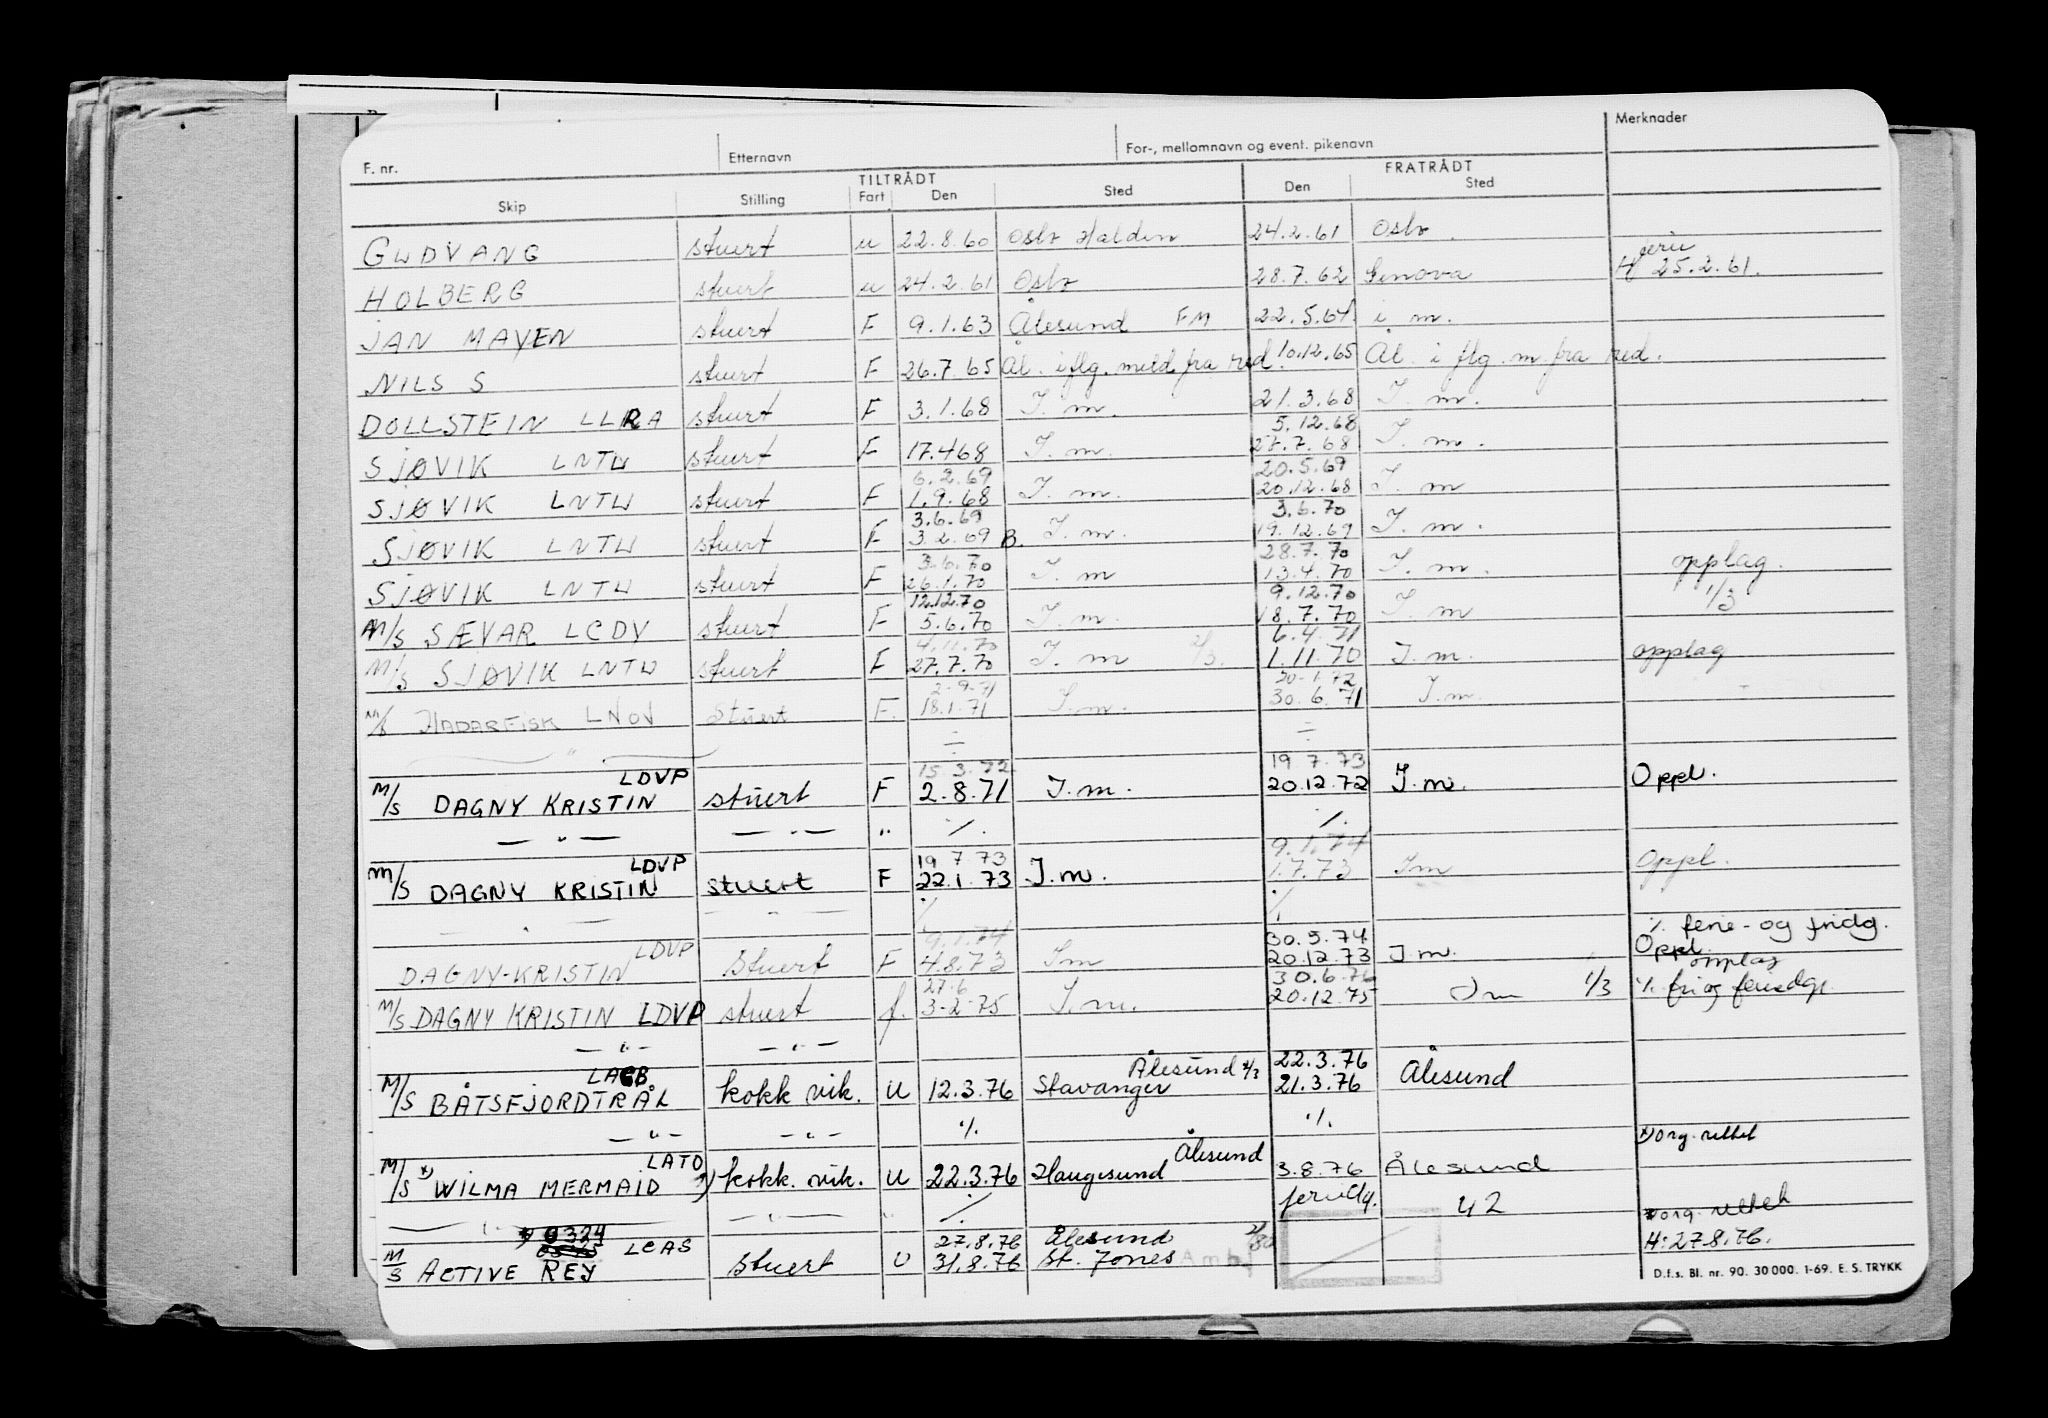 F. nr. Etternavn For-, mellomnavn og event. pikenavn Merknader
TILTRÅDT FRATRÅDT
Skip Stilling Fart Den Sted Den Sted
GUDVANG stuert u 22.8.60 Oslo Halden 24.2.61 Oslo
HOLBERG stuert u 24.2.61 Oslo 28.7.62 Genova H 25.2.61.
JAN MAYEN stuert F 9.1.63 Ålesund FM 22.5.64 i m.
NILS S stuert F 26.7.65 Ål. iflg. meld fra red. 10.12.65 Ål. i flg. m. fra red.
DOLLSTEIN LLRA stuert F 3.1.68 I. m. 21.3.68 I. m.
5.12.68
SJØVIK LNTW stuert F 17.4.68 I. m. 27.7.68 I. m.
6.2.69 20.5.69
SJØVIK LNTW stuert F 1.9.68 I. m. 20.12.68 I. m
3.6.69 3.6.70
SJØVIK LNTW stuert F 3.2.69 B. I. m. 19.12.69 I. m.
3.6.70 28.7.70
SJØVIK LNTW stuert F 26.1.70 I. m 13.4.70 I. m. opplag.
12.12.70 9.12.70 1/3
M/S SÆVAR LCDV stuert F 5.6.70 I. m. 18.7.70 I. m
4.11.70 6.4.71
M/S SJØVIK LNTW stuert F 27.7.70 I. m 1.11.70 I. m. opplag
2-9-71 20-1.72
M/S HADARFISK LNOV Stuert F. 18.1.71 I. m. 30.6.71 I. m.
— " — ÷ ÷
LDVP 15.3.72 19 7.73
M/S DAGNY KRISTIN stuert F 2.8.71 I. m. 20.12.72 I. m. Oppl.
— " — — " — " ./. ./.
LDVP 19 7.73 9.1.74
M/S DAGNY KRISTIN stuert F 22.1.73 I. m. 1.7.73 Im Oppl.
— " — — " — ./. ./.
./. ferie- og fridg.
LDVP 9.1.74 30.5.74 Oppl.
DAGNY-KRISTIN Stuert F 4.8.73 Im 20.12.73 I. m.
27.6 30.6.76 opplag
M/S DAGNY KRISTIN LDVP stuert f. 3-2-75 I. m. 20.12.75 Im 1/3 ./. fri og feriedgr.
— " — — " —
LAGB Ålesund 2/3 22.3.76
M/S BÅTSFJORDTRÅL kokk vik. U 12.3.76 Stavanger 21.3.76 Ålesund
— " — — " — ./. ./.
LATO Ålesund x) org. rettet
M/S x) WILMA MERMAID kokk. vik. U 22.3.76 Haugesund 3.8.76 Ålesund
— " — — " — " ./. feriedg. 42
x) 0324 LCAS 27.8.76 Ålesund org. rettet
M/S ACTIVE REY stuert U 31.8.76 St. Jones H: 27.8.76.
D.f.s. Bl. nr. 90. 30 000. 1-69. E. S. TRYKK